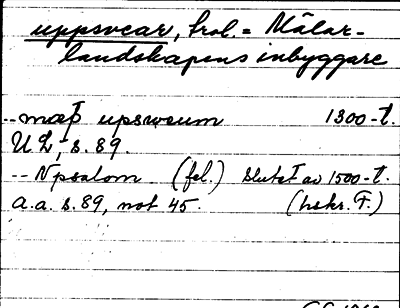 uppsvear, trol. = Mälar-
landskapens inbyggare
-- mæþ upsweum 1300-t.
UL, s. 89.
-- Vpsalom (fel.) slutet av 1500-t.
a.a. s. 89, not 45. (hskr. F.)